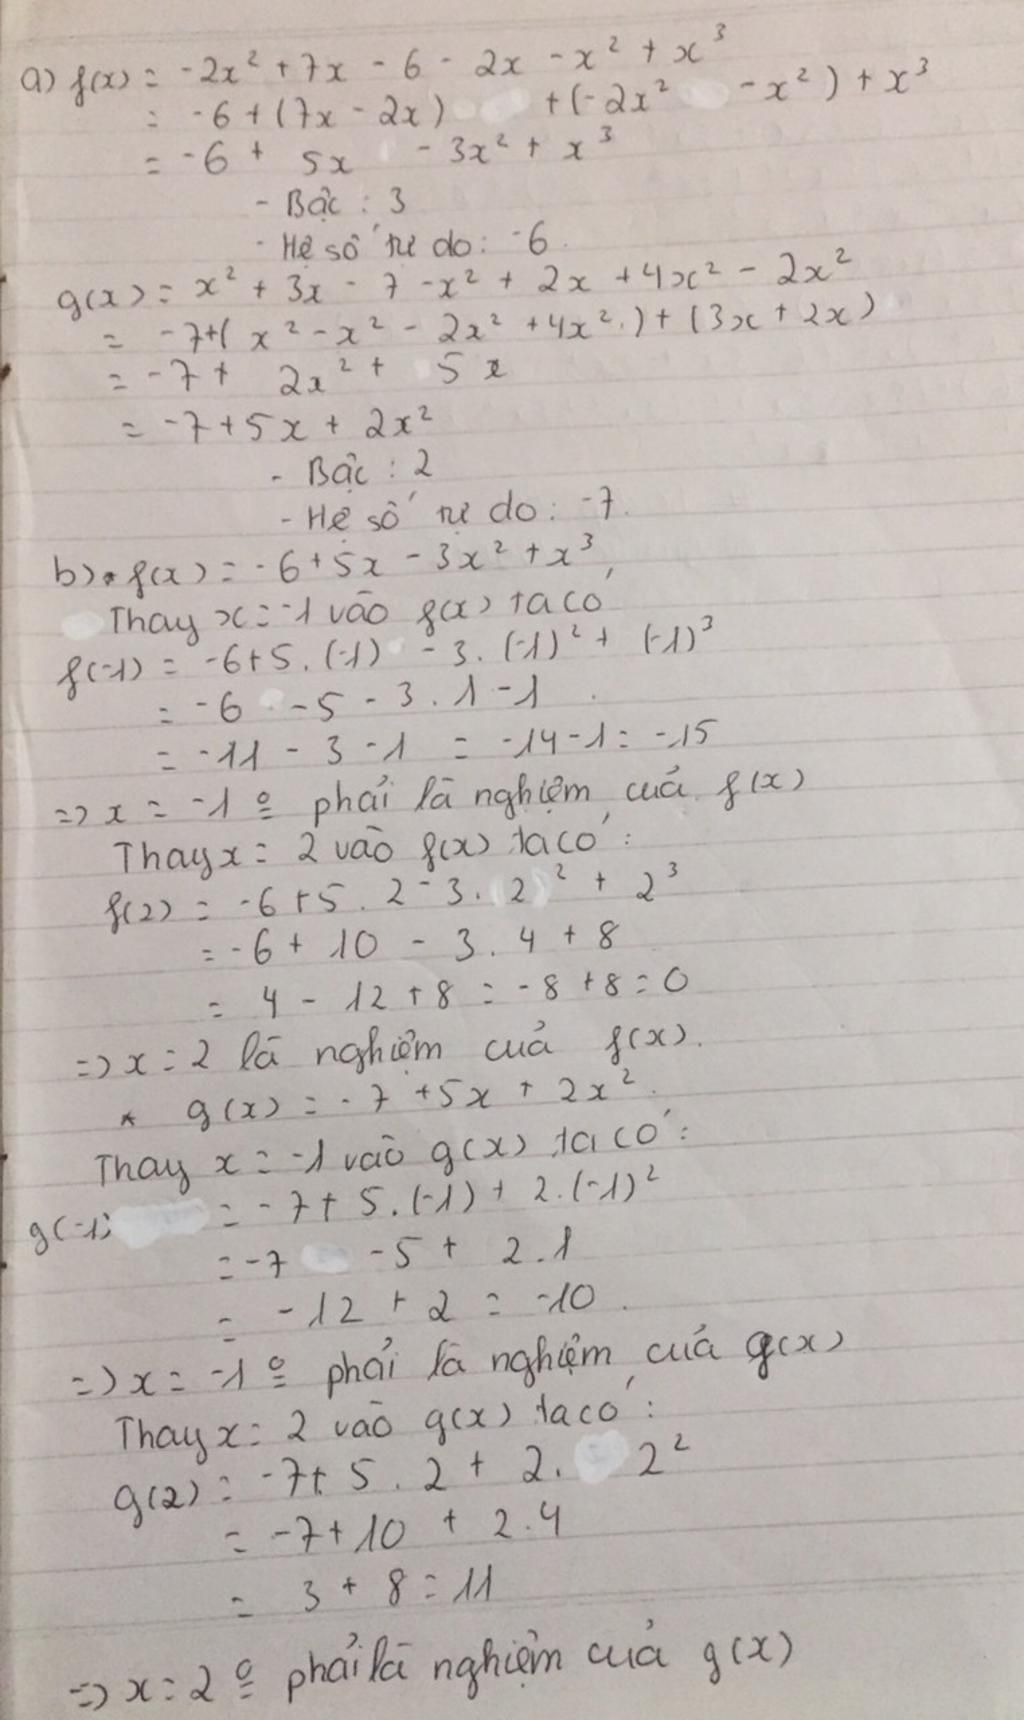 a) f(x) = -2x² + 7x - 6 - 2x - x² + x³
= -6 + (7x - 2x) + (-2x² - x²) + x³
= -6 + 5x - 3x² + x³
- Bậc : 3
- Hệ số tự do : -6.
g(x) = x² + 3x - 7 - x² + 2x + 4x² - 2x²
= -7 + ( x² - x² - 2x² + 4x² ) + (3x + 2x)
= -7 + 2x² + 5x
= -7 + 5x + 2x²
- Bậc : 2
- Hệ số tự do : -7.
b) * f(x) = -6 + 5x - 3x² + x³
Thay x = -1 vào f(x) ta có
f(-1) = -6 + 5 . (-1) - 3 . (-1)² + (-1)³
= -6 - 5 - 3 . 1 - 1
= -11 - 3 - 1 = -14 - 1 = -15
=> x = -1 º phải là nghiệm của f(x)
Thay x = 2 vào f(x) ta có :
f(2) = -6 + 5 . 2 - 3 . 2² + 2³
= -6 + 10 - 3 . 4 + 8
= 4 - 12 + 8 = -8 + 8 = 0
=> x = 2 là nghiệm của f(x).
* g(x) = -7 + 5x + 2x².
Thay x = -1 vào g(x) ta có :
g(-1) = -7 + 5 . (-1) + 2 . (-1)²
= -7 - 5 + 2 . 1
= -12 + 2 = -10 .
=> x = -1 º phải là nghiệm của g(x)
Thay x = 2 vào g(x) ta có :
g(2) = -7 + 5 . 2 + 2 . 2²
= -7 + 10 + 2 . 4
= 3 + 8 = 11
=> x = 2 º phải là nghiệm của g(x)